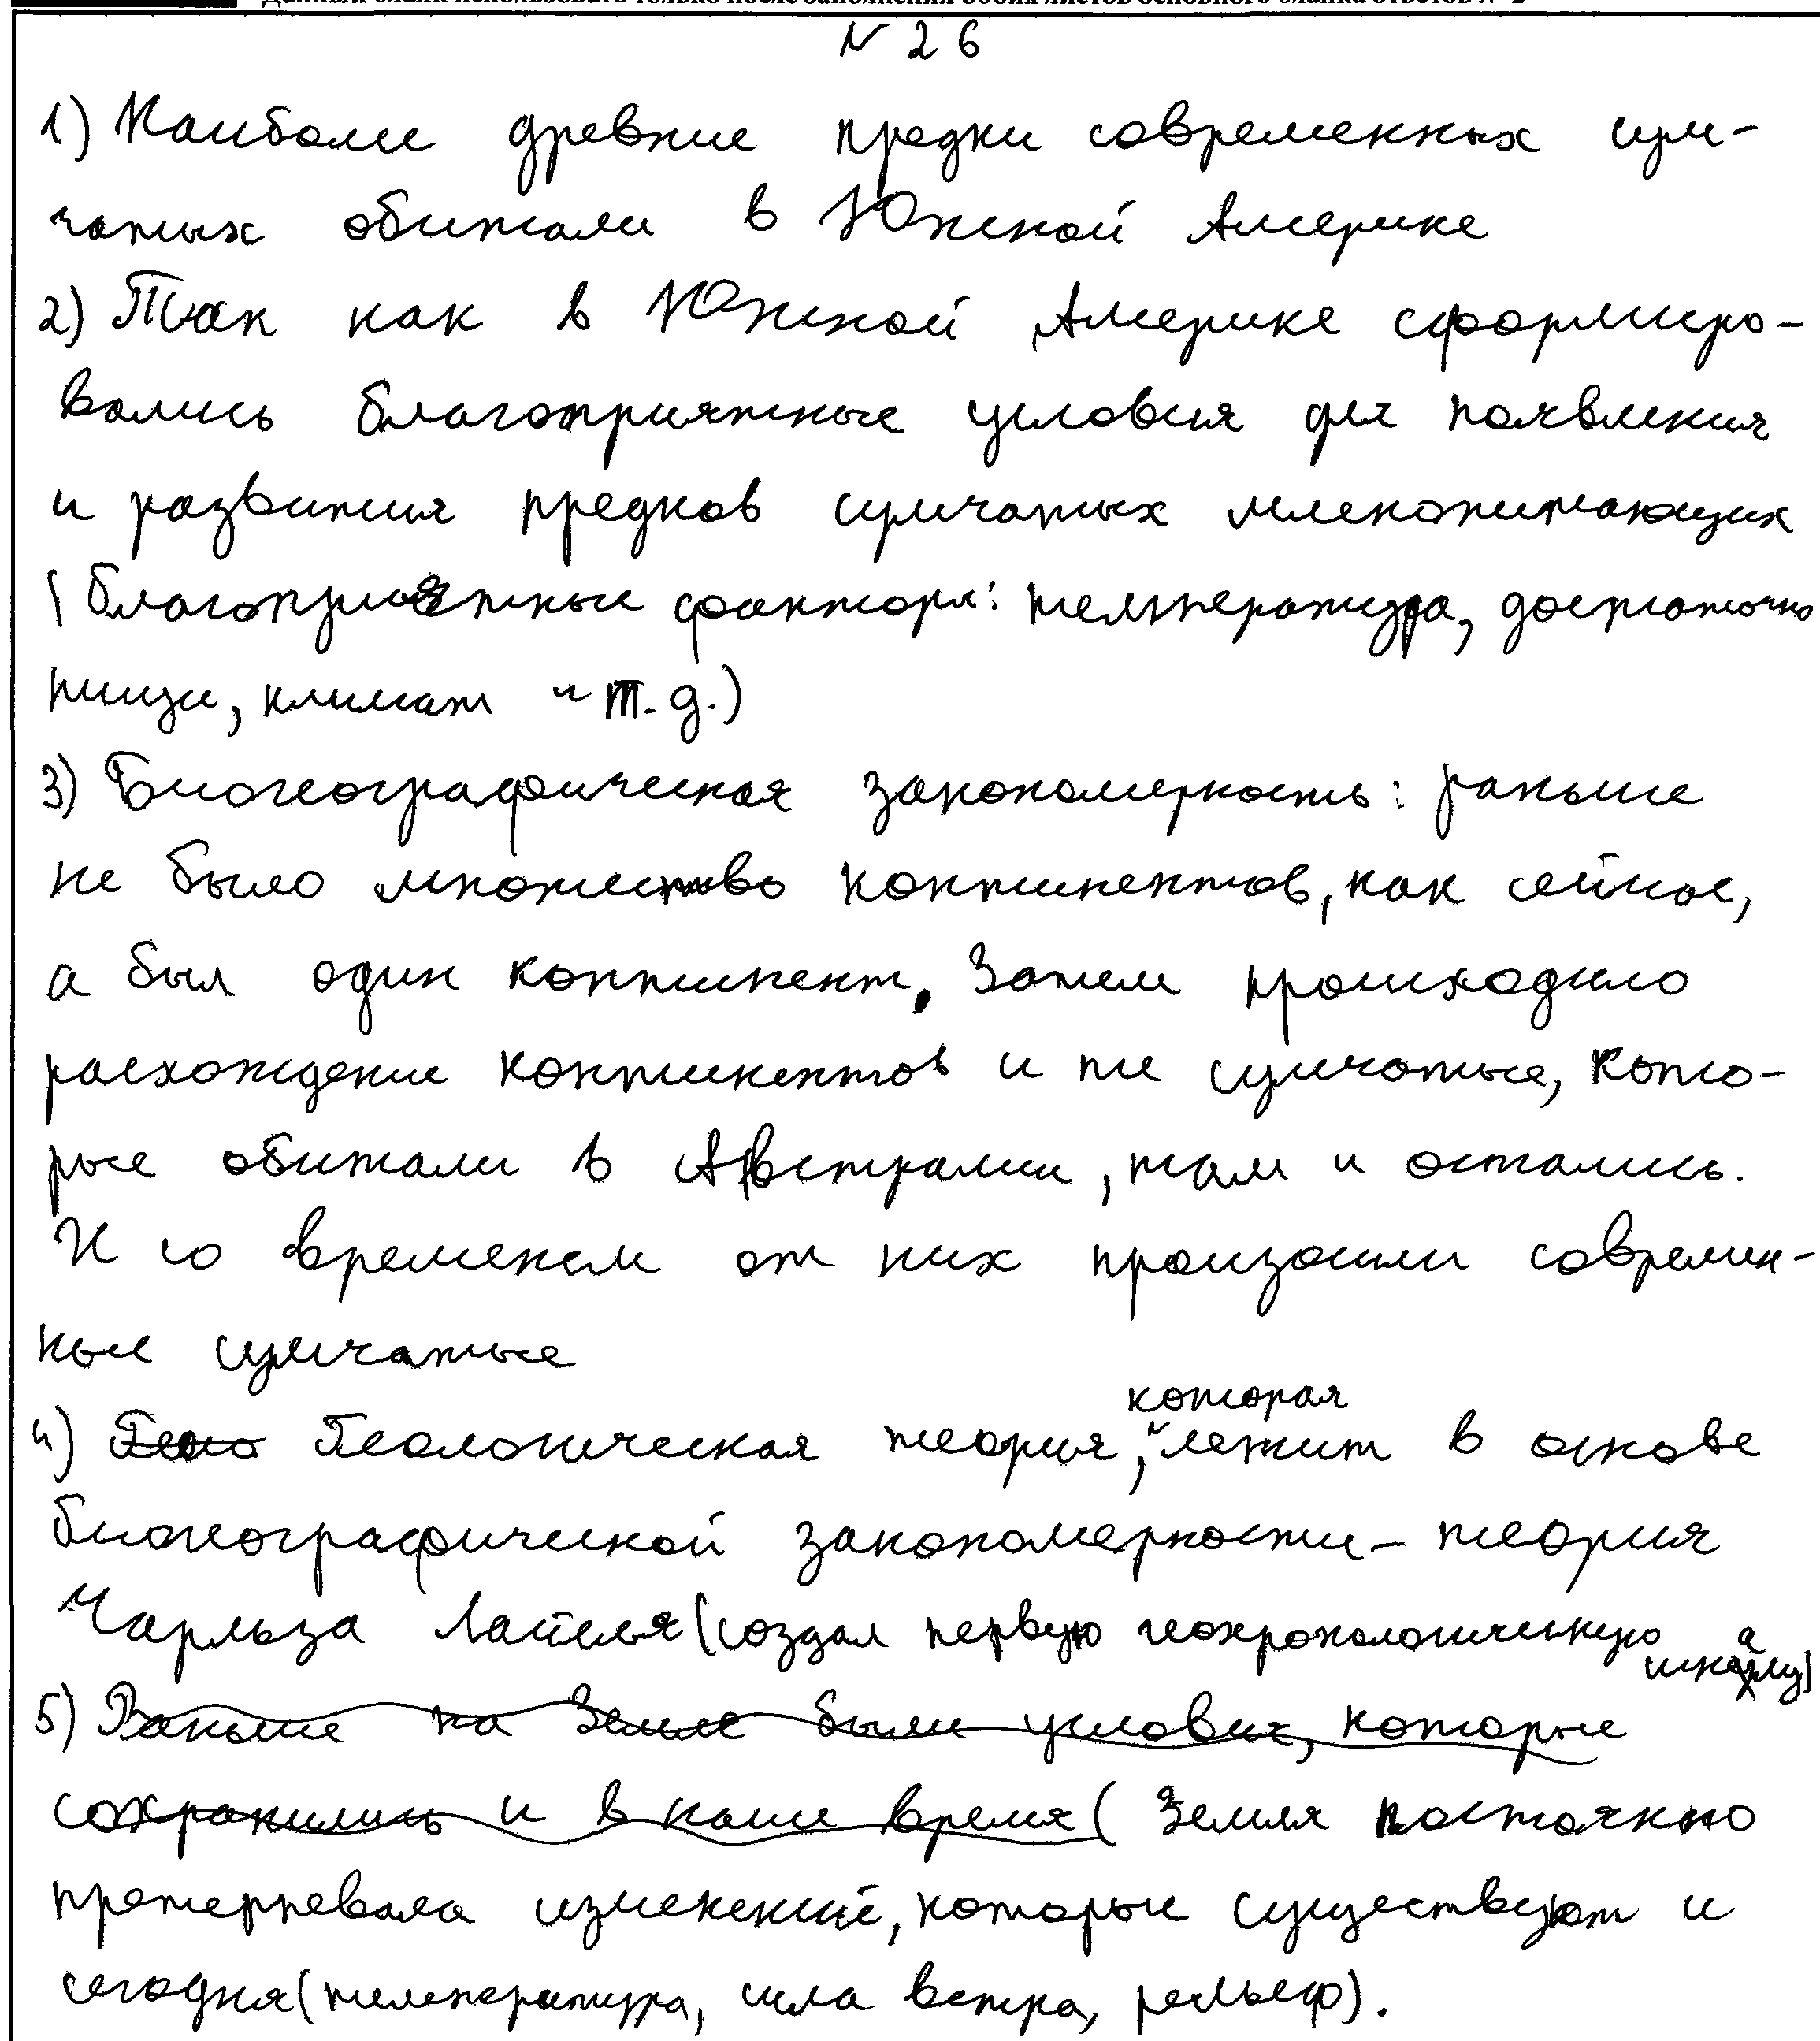 Данный бланк использовать только после заполнения обоих листов основного бланка ответов № 2
N 26
1) Наиболее древние предки современных сум-
чатых обитали в Южной Америке
2) Так как в Южной Америке сформиро-
вались благоприятные условия для появления
и развития предков сумчатых млекопитающих
(благоприятные факторы: температура, достаточно
пищи, климат и т.д.)
3) Биогеографическая закономерность: раньше
не было множество континентов, как сейчас,
а был один континент. Затем происходило
расхождение континентов и те сумчатые, кото-
рые обитали в Австралии, там и остались.
И со временем от них произошли современ-
ные сумчатые
которая
4) Геологическая теория, лежит в основе
биогеографической закономерности – теория
Чарльза Лайеля (создал первую геохронологическую
шкалу)
5) Раньше на Земле были условия, которые
сохранились и в наше время ( Земля постоянно
претерпевала изменений, которые существуют и
сегодня (температура, сила ветра, рельеф).